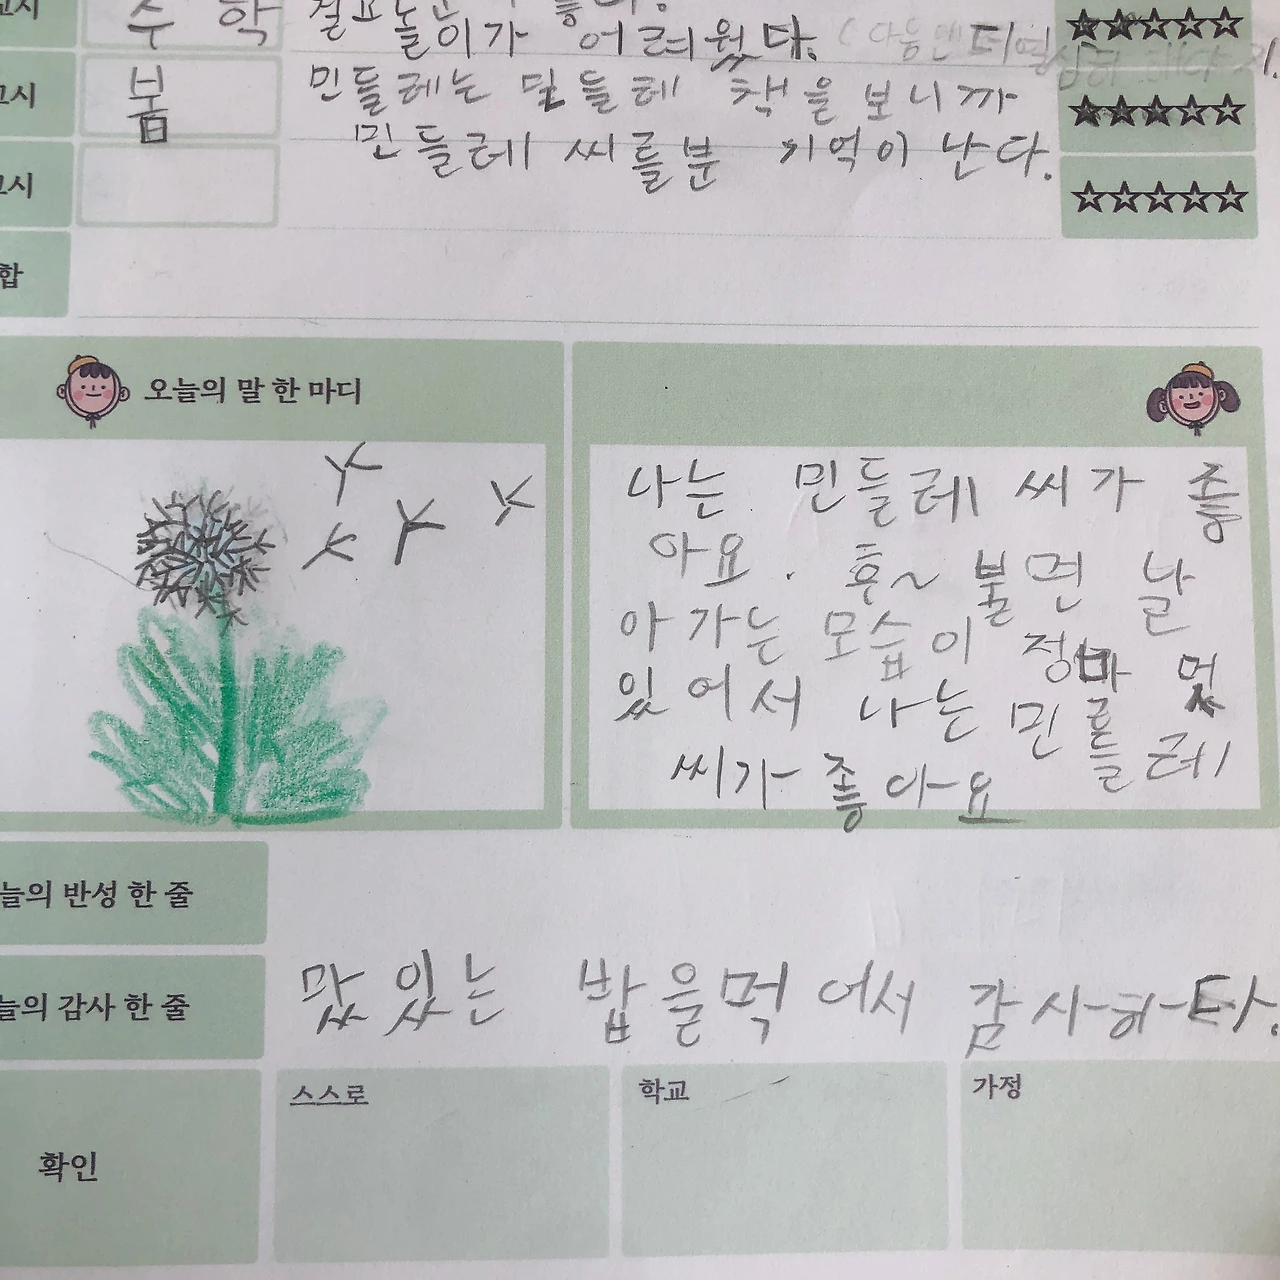 교시 수학
놀이가 어려웠다. (다음엔 더 열심히 해야지.
★★☆☆☆
교시 봄 민들레는 민들레 책을 보니까
민들레 씨를분 기억이 난다.
★★★☆☆
교시
☆☆☆☆☆
합
오늘의 말 한 마디
나는 민들레 씨가 좋
아요. 후~ 불면 날
아가는 모습이 정말 멋
있어서 나는 민들레
씨가 좋아요
늘의 반성 한 줄
늘의 감사 한 줄 맜있는 밥을먹어서 감사하다.
확인 스스로 학교 가정